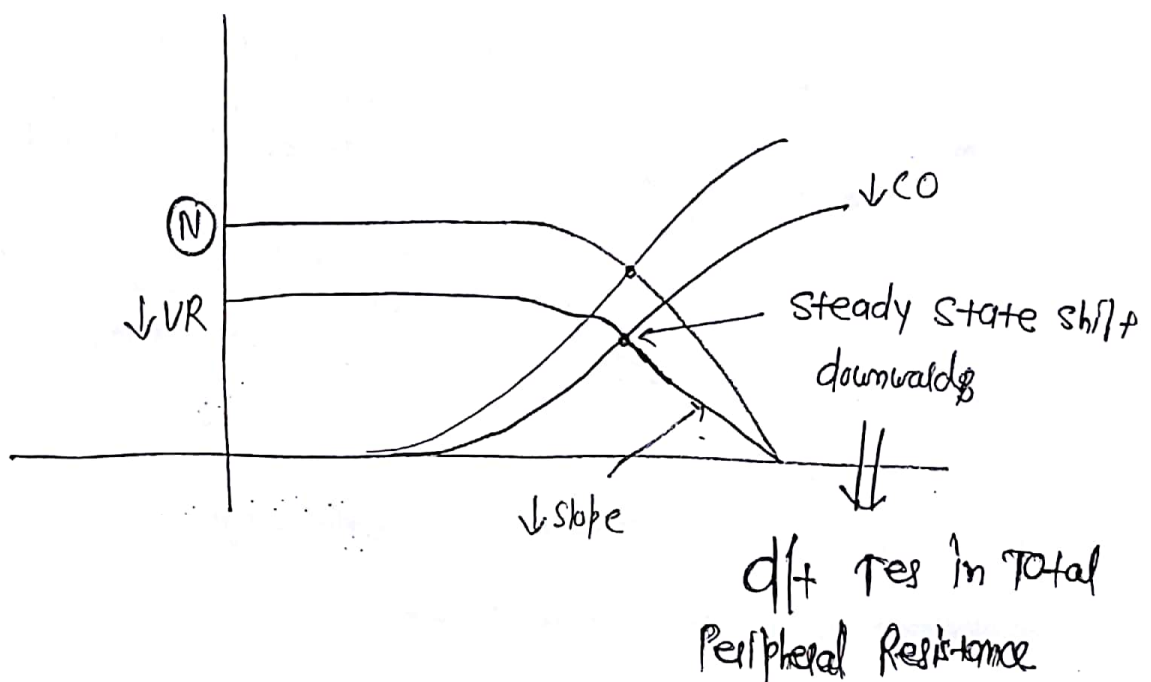 N
↓VR
↓CO
Steady State Shift
downwards
↓Slope
d/t ↑es in Total
Peripheral Resistance